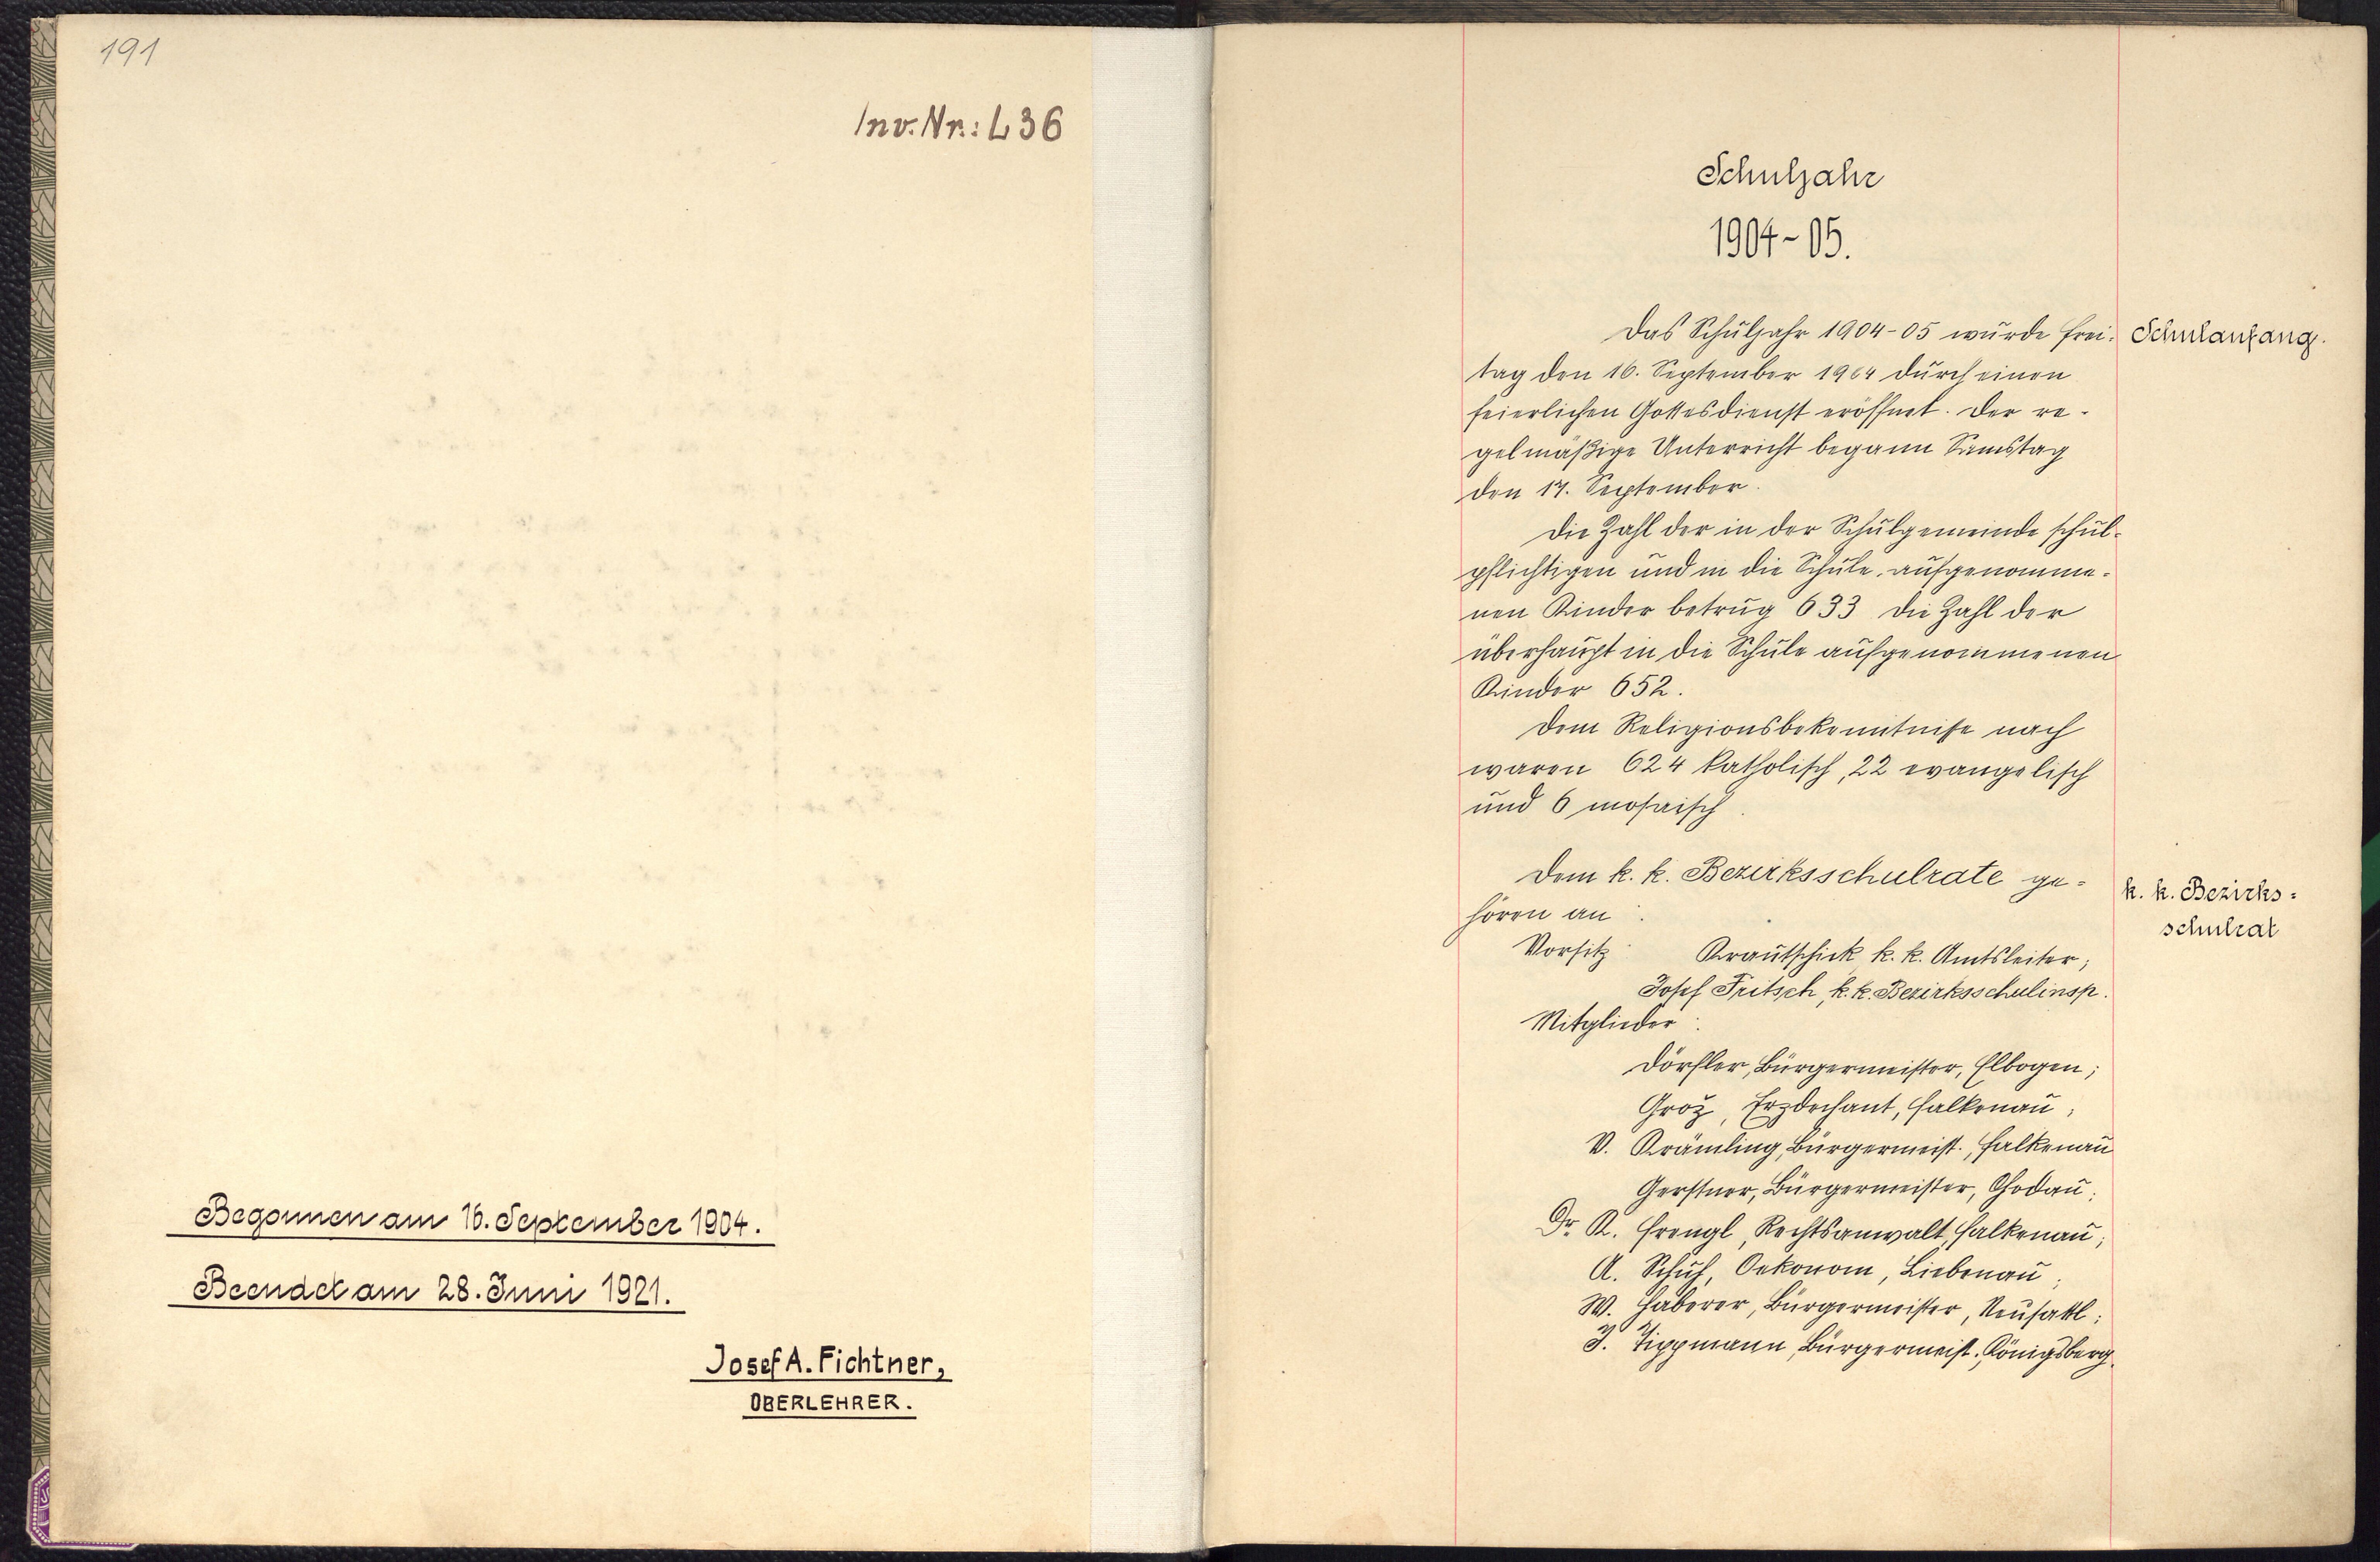 191
Inv. Nr.: L 36
Begonnen am 16. September 1904.
Beendet am 28. Juni 1921.
Josef A. Fichtner,
OBERLEHRER.
Schuljahr
1904-05.
Das Schuljahr 1904-05 wurde Frei-
Schulanfang.
tag den 16. September 1904 durch einen
feierlichen Gottesdienst eröffnet. Der re-
gelmäßige Unterricht begann Samstag
den 17. September.
Die Zahl der in der Schulgemeinde schul-
pflichtigen und in die Schule aufgenomme-
nen Kinder betrug 633 die Zahl der
überhaupt in die Schule aufgenommenen
Kinder 652.
Dem Religionsbekenntnisse nach
waren 624 katholisch, 22 evangelisch
und 6 mosaisch.
Dem k. k. Bezirksschulrate ge-
k. k. Bezirks-
hören an:
schulrat
Vorsitz: Krautschick k. k. Amtsleiter;
Josef Fritsch, k. k. Bezirksschulinsp.
Mitglieder:
Dörfler, Bürgermeister, Elbogen;
Groz, Erzdechant, Falkenau;
V. Krämling, Bürgermeist., Falkenau
Gerstner, Bürgermeister, Chodau;
Dr. K. Frengl, Rechtsanwalt, Falkenau;
A. Schuh, Oekonom, Liebenau;
W. Haberer, Bürgermeister, Neusattl;
J. Tippmann, Bürgermeist. Königsberg.